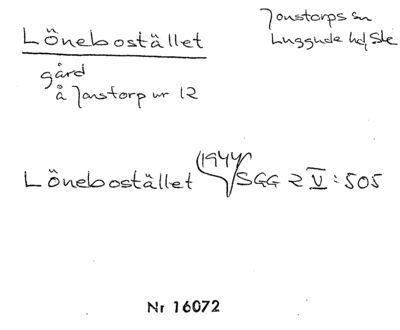 Lönebostället
Jonstorps sn
Luggude hd, Skåne
gård
å Jonstorp nr 12
Lönebostället (1944) SGG 2 V : 505
Nr 16072